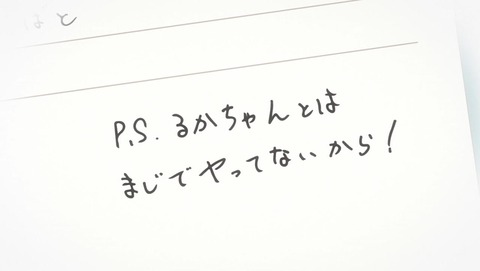 はと
P.S. るかちゃんとは
まじでヤってないから!